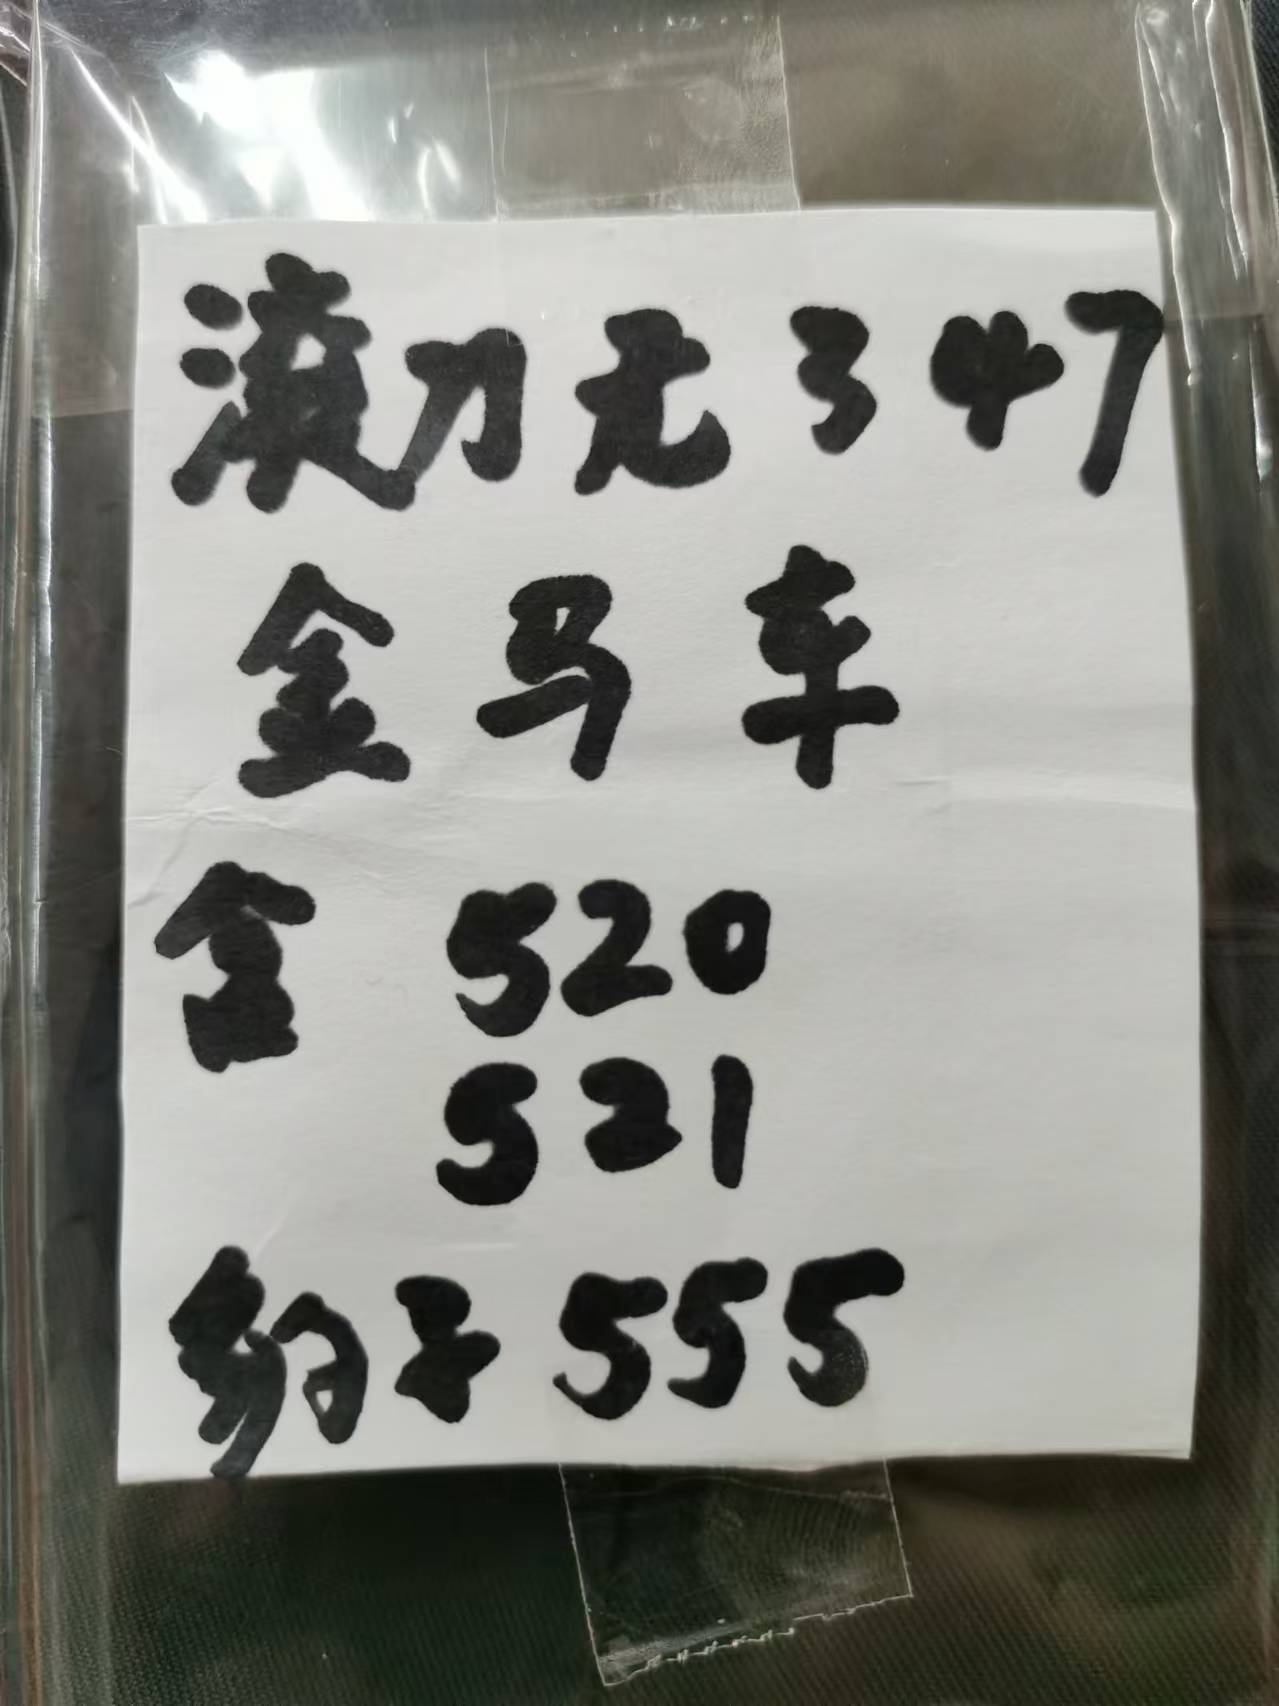 滚刀无347
金马车
含 520
521
豹子555